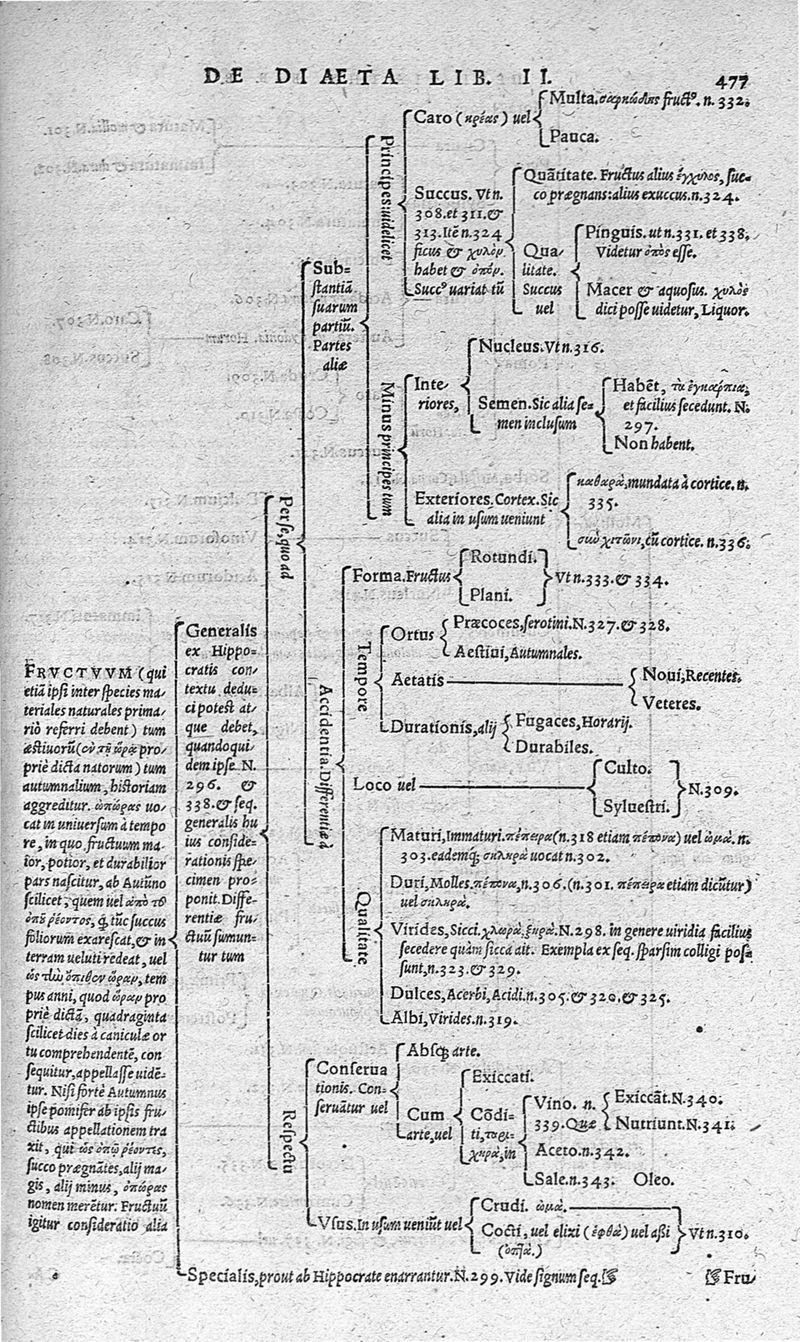 DE DIAETA LIB. II.
477
FRVCTVVM (qui
etiā ipsi inter species ma-
teriales naturales prima-
riò referri debent) tum
æstiuorũ (ὀν τῇ ὥρᾳ pro-
priè dicta natorum) tum
autumnalium, historiam
aggreditur. ὠπώρας uo-
cat in uniuersum à tempo
re, in quo fructuum ma-
ior, potior, et durabilior
pars nascitur, ab Autũno
scilicet, quem uel
tũc succus
foliorum exarescat, & in
terram ueluti redeat, uel
tem
pus anni, quod ὥραν pro
priè dictā, quadraginta
scilicet dies à caniculæ or
tu comprehendentẽ, con
sequitur, appellasse uidē-
tur. Nisi fortè Autumnus
ipse pomifer ab ipsis fru-
ctibus appellationem tra
xit, qui ὡς ὀπῷ ῥέοντες,
succo prægnātes, alij ma-
gis, alij minus, ὀπώρας
nomen merētur. Fructuũ
igitur consideratio alia
Generalis
ex Hippo-
cratis con-
textu dedu-
ci potest at-
que debet,
quandoqui-
dem ipse N.
296. &
338. & seq.
generalis hu
ius conside-
rationis spe-
cimen pro-
ponit. Diffe-
rentiæ fru-
ctuũ sumun-
tur tum
Per se, quo ad
Sub-
stantiā
suarum
partiũ.
Partes
aliæ
Principes: uidelicet
Caro (κρέας) uel
Multa. σαρκώδης fruct⁹. n. 332.
Pauca.
Succus. Vt n.
308. et 311. &
313. Itē n. 324
ficus & χυλὸν
habet & ὀπόν.
Succ⁹ uariat tũ
Quātitate. Fructus alius ἔγχυλος, suc-
co prægnans: alius exuccus. n. 324.
Qua-
litate.
Succus
uel
Pinguis. ut n. 331. et 338.
Videtur ὀπὸς esse.
Macer & aquosus. χυλὸς
dici posse uidetur, Liquor.
Minus principes tum
Inte-
riores,
Nucleus. Vt n. 316.
Semen. Sic alia se-
men inclusum
Habēt, τὰ ἐγκάρπια,
et facilius secedunt. N.
297.
Non habent.
Exteriores, Cortex. Sic
alia in usum ueniunt
καθαρὰ, mundata à cortice. n.
335.
σὺν χιτῶνι, cũ cortice. n. 336.
Accidentia. Differentiæ à
Forma. Fructus
Rotundi.
Plani.
Vt n. 333. & 334.
Tempore
Ortus
Præcoces, serotini. N. 327. & 328.
Aestiui, Autumnales.
Aetatis
Noui, Recentes.
Veteres.
Durationis, alij
Fugaces, Horarij.
Durabiles.
Loco uel
Culto.
Syluestri.
N. 309.
Qualitate
Maturi, Immaturi. πέπειρα (n. 318 etiam πέπονα) uel ὠμὰ. n.
303. eademq́; σκληρὰ uocat n. 302.
Duri, Molles. πέπονα, n. 306. (n. 301. πέπειρα etiam dicũtur)
uel σκληρὰ.
Virides, Sicci. χλωρὰ, ξηρὰ. N. 298. in genere uiridia facilius
secedere quàm sicca ait. Exempla ex seq. sparsim colligi pos-
sunt, n. 323. & 329.
Dulces, Acerbi, Acidi. n. 305. & 320. & 325.
Albi, Virides. n. 319.
Respectu
Conserua
tionis. Con-
seruātur uel
Absq; arte.
Cum
arte, uel
Exiccati.
Cōdi-
ti, ταρι-
χηρὰ, in
Vino. n.
339. Quæ
Exiccāt. N. 340.
Nutriunt. N. 341.
Aceto. n. 342.
Sale. n. 343. Oleo.
Vsus. In usum ueniũt uel
Crudi. ὠμὰ.
Cocti, uel elixi (ἑφθὰ) uel assi
(ὀπτὰ.)
Vt n. 310.
Specialis, prout ab Hippocrate enarrantur. N. 299. Vide signum seq. ☞
☞ Fru-